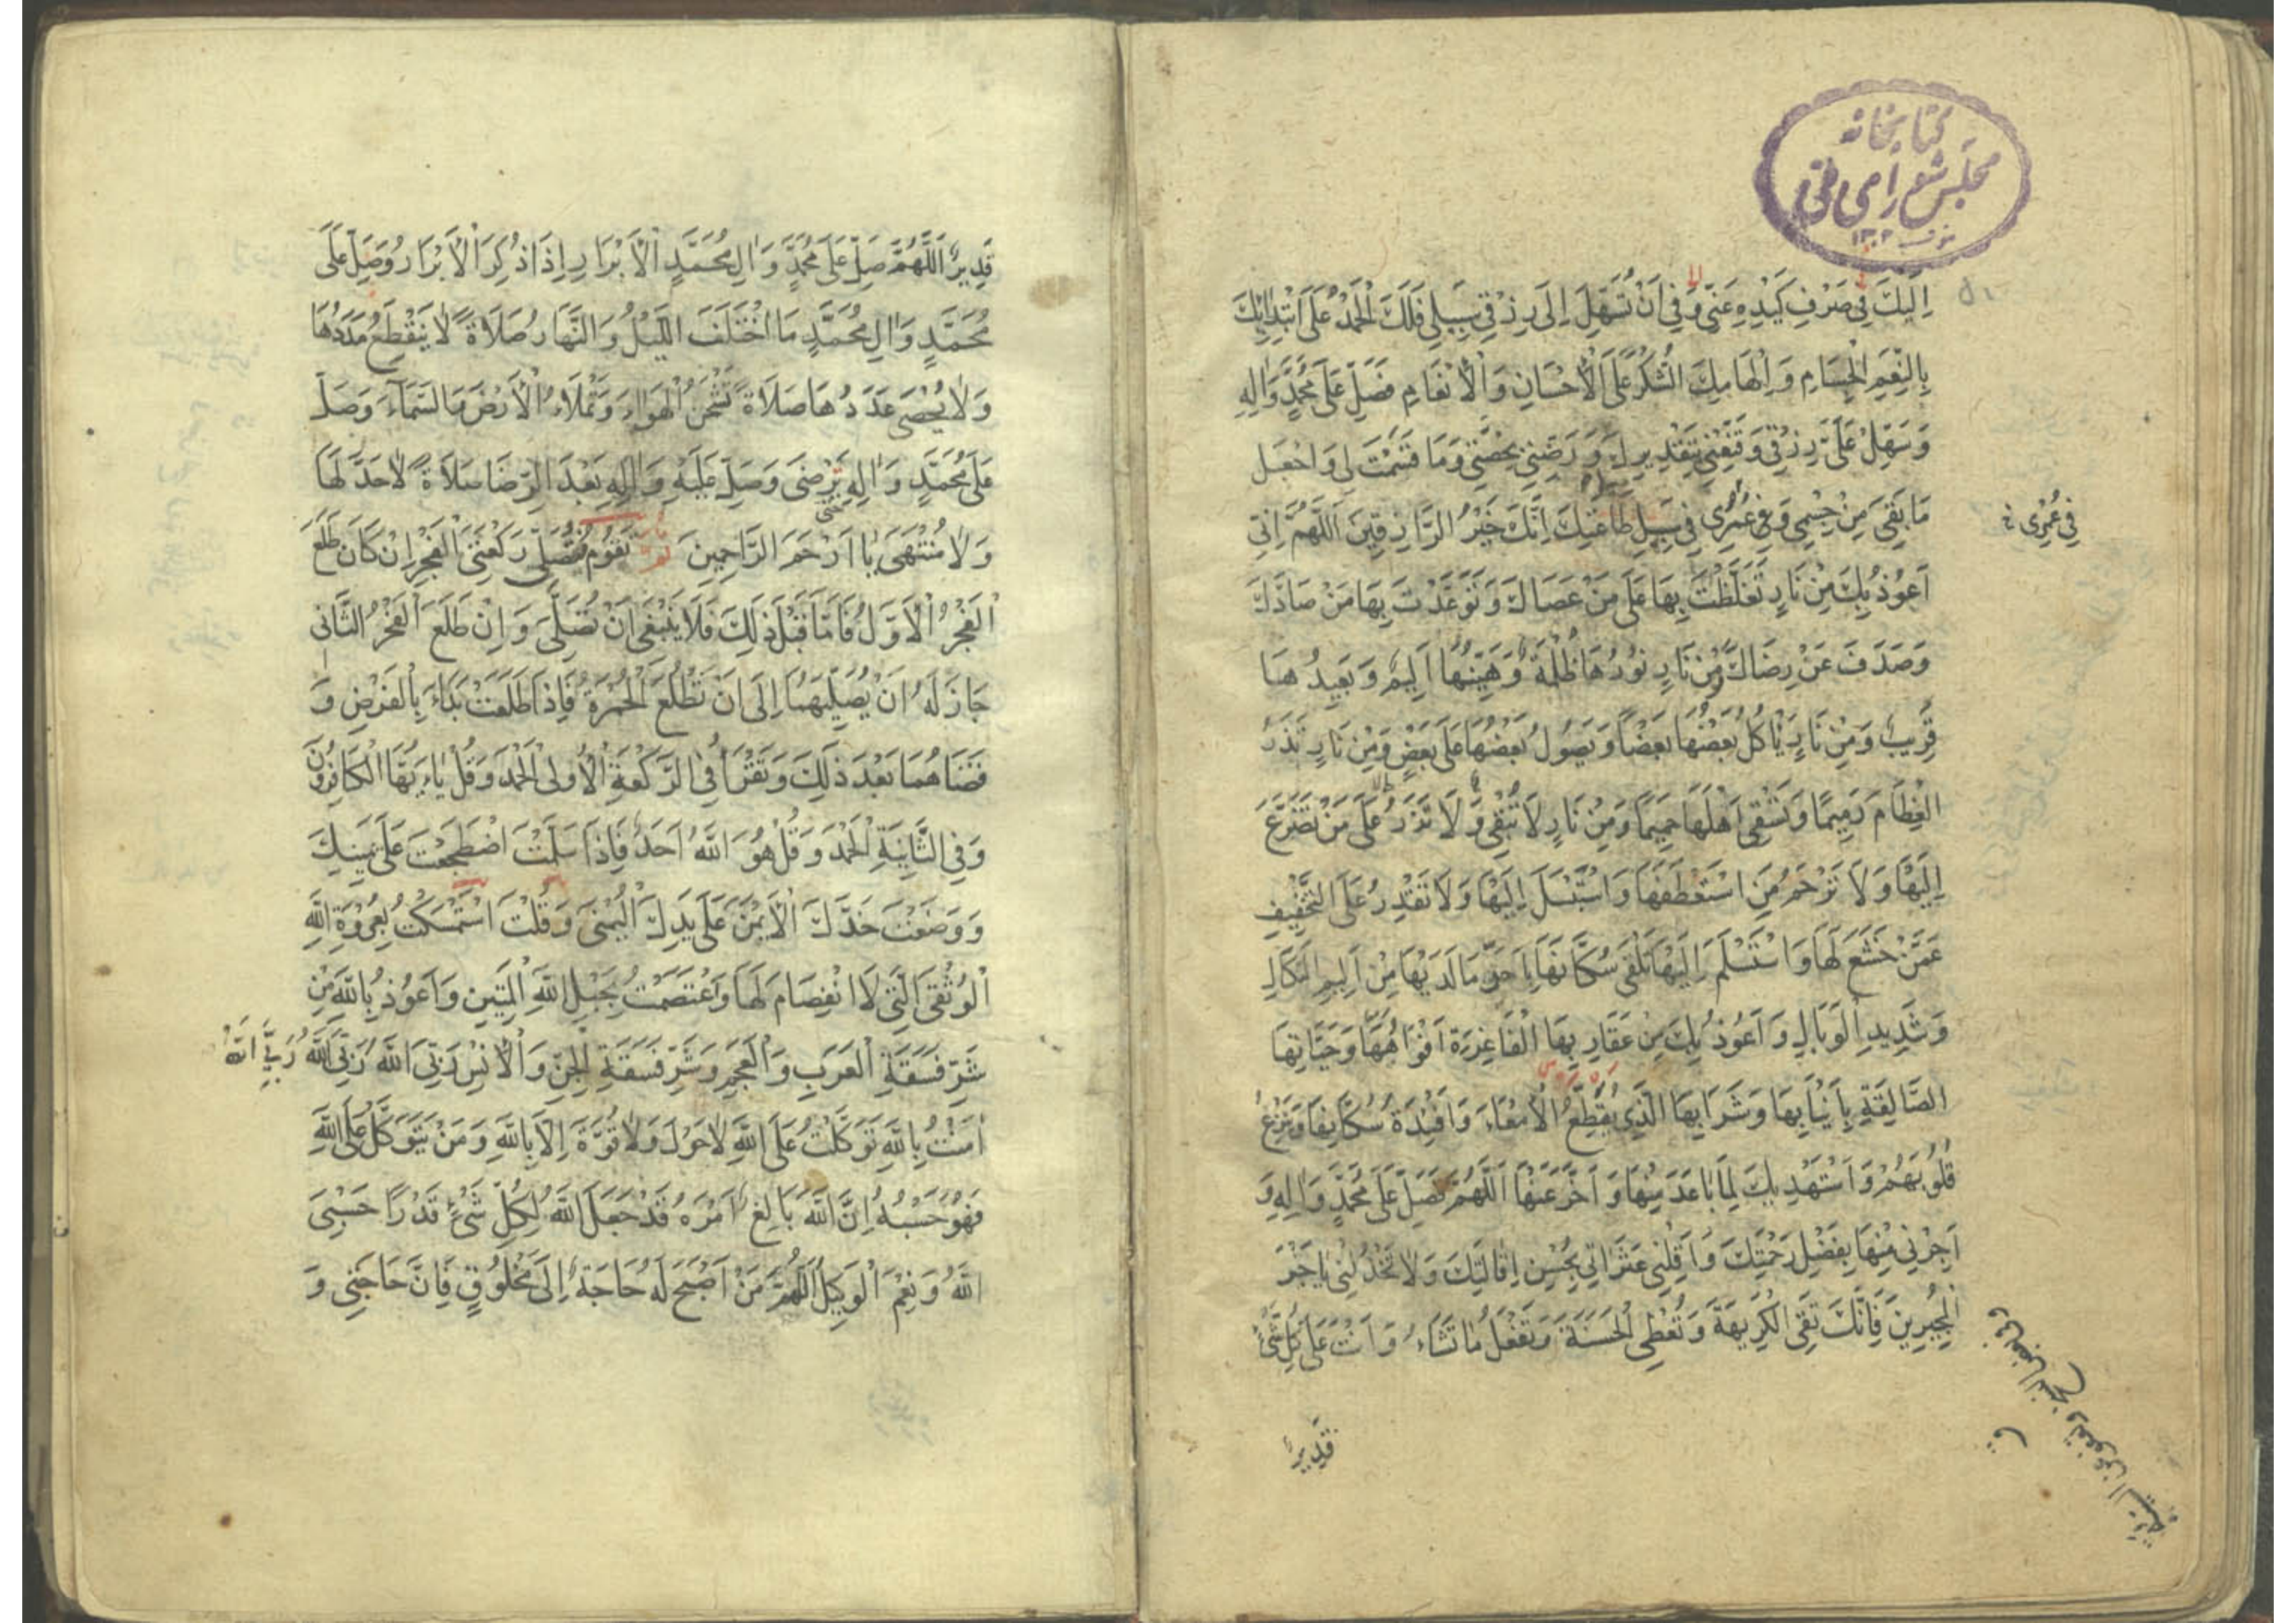 كتابخانه
مجلس شورای ملی
۱۳۰۲
اِلَيْكَ فِي صَرْفِ كَيْدِهِ عَنِّي وَفِي اَنْ تُسَهِّلَ اِلَى رِزْقِي سَبِيلِي فَلَكَ الْحَمْدُ عَلَى ابْتِدَائِكَ
بِالنِّعَمِ الْجِسَامِ وَاِلْهَامِكَ الشُّكْرَ عَلَى الْاِحْسَانِ وَالْاِنْعَامِ فَصَلِّ عَلَى مُحَمَّدٍ وَاٰلِهِ
وَسَهِّلْ عَلَيَّ رِزْقِي وَقَنِّعْنِي بِتَقْدِيرِكَ وَرَضِّنِي بِحِصَّتِي وَمَا قَسَمْتَ لِي وَاجْعَلْ
مَا بَقِيَ مِنْ جِسْمِي وَفِي عُمْرِي فِي سَبِيلِ طَاعَتِكَ اِنَّكَ خَيْرُ الرَّازِقِينَ اَللّٰهُمَّ اِنِّي
فِي عُمْرِي
اَعُوذُ بِكَ مِنْ نَارٍ تَغَلَّظْتَ بِهَا عَلَى مَنْ عَصَاكَ وَتَوَعَّدْتَ بِهَا مَنْ صَادَّكَ
وَصَدَفَ عَنْ رِضَاكَ وَمِنْ نَارٍ نُورُهَا ظُلْمَةٌ وَهَيِّنُهَا اَلِيمٌ وَبَعِيدُهَا
قَرِيبٌ وَمِنْ نَارٍ يَأْكُلُ بَعْضُهَا بَعْضًا وَيَصُولُ بَعْضُهَا عَلَى بَعْضٍ وَمِنْ نَارٍ تَذَرُ
الْعِظَامَ رَمِيمًا وَتَسْقِي اَهْلَهَا حَمِيمًا وَمِنْ نَارٍ لَا تُبْقِي وَلَا تَذَرُ عَلَى مَنْ تَضَرَّعَ
اِلَيْهَا وَلَا تَرْحَمُ مَنِ اسْتَعْطَفَهَا وَاسْتَبْسَلَ اِلَيْهَا وَلَا تَقْدِرُ عَلَى التَّخْفِيفِ
عَمَّنْ خَشَعَ لَهَا وَاسْتَسْلَمَ اِلَيْهَا تَلْقَى سُكَّانَهَا بِاَحَرِّ مَا لَدَيْهَا مِنْ اَلِيمِ النَّكَالِ
وَشَدِيدِ الْوَبَالِ وَاَعُوذُ بِكَ مِنْ عَقَارِبِهَا الْفَاغِرَةِ اَفْوَاهُهَا وَحَيَّاتِهَا
الصَّالِقَةِ بِاَنْيَابِهَا وَشَرَابِهَا الَّذِي يُقَطِّعُ الْاَمْعَاءَ وَاَفْئِدَةَ سُكَّانِهَا وَيَنْزِعُ
قُلُوبَهُمْ وَاَسْتَهْدِيكَ لِمَا بَاعَدَ مِنْهَا وَاَخَّرَ عَنْهَا اَللّٰهُمَّ فَصَلِّ عَلَى مُحَمَّدٍ وَاٰلِهِ وَ
اَجِرْنِي مِنْهَا بِفَضْلِ رَحْمَتِكَ وَاَقِلْنِي عَثَرَاتِي بِحُسْنِ اِقَالَتِكَ وَلَا تَخْذُلْنِي يَا خَيْرَ
الْمُجِيرِينَ فَاِنَّكَ تَقِي الْكَرِيهَةَ وَتُعْطِي الْحَسَنَةَ وَتَفْعَلُ مَا تَشَاءُ وَاَنْتَ عَلَى كُلِّ شَيْءٍ
قَدِيرٌ
قَدِيرٌ اَللّٰهُمَّ صَلِّ عَلَى مُحَمَّدٍ وَاٰلِ مُحَمَّدٍ الْاَبْرَارِ اِذَا ذُكِرَ الْاَبْرَارُ وَصَلِّ عَلَى
مُحَمَّدٍ وَاٰلِ مُحَمَّدٍ مَا اخْتَلَفَ اللَّيْلُ وَالنَّهَارُ صَلَاةً لَا يَنْقَطِعُ مَدَدُهَا
وَلَا يُحْصَى عَدَدُهَا صَلَاةً تَشْحَنُ الْهَوَاءَ وَتَمْلَاءُ الْاَرْضَ وَالسَّمَاءَ وَصَلِّ
عَلَى مُحَمَّدٍ وَاٰلِهِ حَتَّى يَرْضَى وَصَلِّ عَلَيْهِ وَاٰلِهِ بَعْدَ الرِّضَا صَلَاةً لَا حَدَّ لَهَا
وَلَا مُنْتَهَى يَا اَرْحَمَ الرَّاحِمِينَ تَقُومُ فَتُصَلِّي رَكْعَتَيِ الْفَجْرِ اِنْ كَانَ طَلَعَ
الْفَجْرُ الْاَوَّلُ فَاَمَّا قَبْلَ ذٰلِكَ فَلَا يَنْبَغِي اَنْ تُصَلِّيَ وَاِنْ طَلَعَ الْفَجْرُ الثَّانِي
جَازَ لَهُ اَنْ يُصَلِّيَهُمَا اِلَى اَنْ تَطْلُعَ الْحُمْرَةُ فَاِذَا طَلَعَتْ بَدَاءَ بِالْفَرْضِ وَ
قَضَاهُمَا بَعْدَ ذٰلِكَ وَتَقْرَأُ فِي الرَّكْعَةِ الْاُولَى الْحَمْدَ وَقُلْ يَاءَيُّهَا الْكَافِرُونَ
وَفِي الثَّانِيَةِ الْحَمْدَ وَقُلْ هُوَ اللّٰهُ اَحَدٌ فَاِذَا سَلَّمْتَ اضْطَجَعْتَ عَلَى يَمِينِكَ
وَوَضَعْتَ خَدَّكَ الْاَيْمَنَ عَلَى يَدِكَ الْيُمْنَى وَقُلْتَ اسْتَمْسَكْتُ بِعُرْوَةِ اللّٰهِ
الْوُثْقَى الَّتِي لَا انْفِصَامَ لَهَا وَاعْتَصَمْتُ بِحَبْلِ اللّٰهِ الْمَتِينِ وَاَعُوذُ بِاللّٰهِ مِنْ
شَرِّ فَسَقَةِ الْعَرَبِ وَالْعَجَمِ وَشَرِّ فَسَقَةِ الْجِنِّ وَالْاِنْسِ رَبِّيَ اللّٰهُ رَبِّيَ اللّٰهُ رَبِّيَ اللّٰهُ
اٰمَنْتُ بِاللّٰهِ تَوَكَّلْتُ عَلَى اللّٰهِ لَا حَوْلَ وَلَا قُوَّةَ اِلَّا بِاللّٰهِ وَمَنْ يَتَوَكَّلْ عَلَى اللّٰهِ
فَهُوَ حَسْبُهُ اِنَّ اللّٰهَ بَالِغُ اَمْرِهِ قَدْ جَعَلَ اللّٰهُ لِكُلِّ شَيْءٍ قَدْرًا حَسْبِيَ
اللّٰهُ وَنِعْمَ الْوَكِيلُ اَللّٰهُمَّ مَنْ اَصْبَحَ لَهُ حَاجَةٌ اِلَى مَخْلُوقٍ فَاِنَّ حَاجَتِي وَ